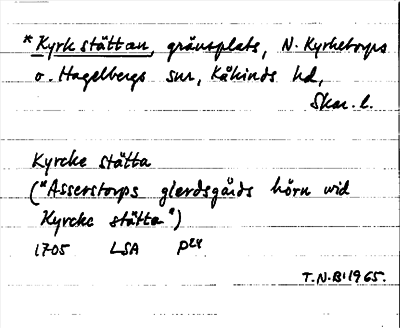 *Kyrkstättan, gränsplats, N. Kyrketorps
o. Hagelbergs snr, Kåkinds hd,
Skar. l.
Kyrcke stätta
("Asserstorps gierdsgårds hörn wid
Kyrcke stätta")
1705 LSA P
T.N.B. 1965.